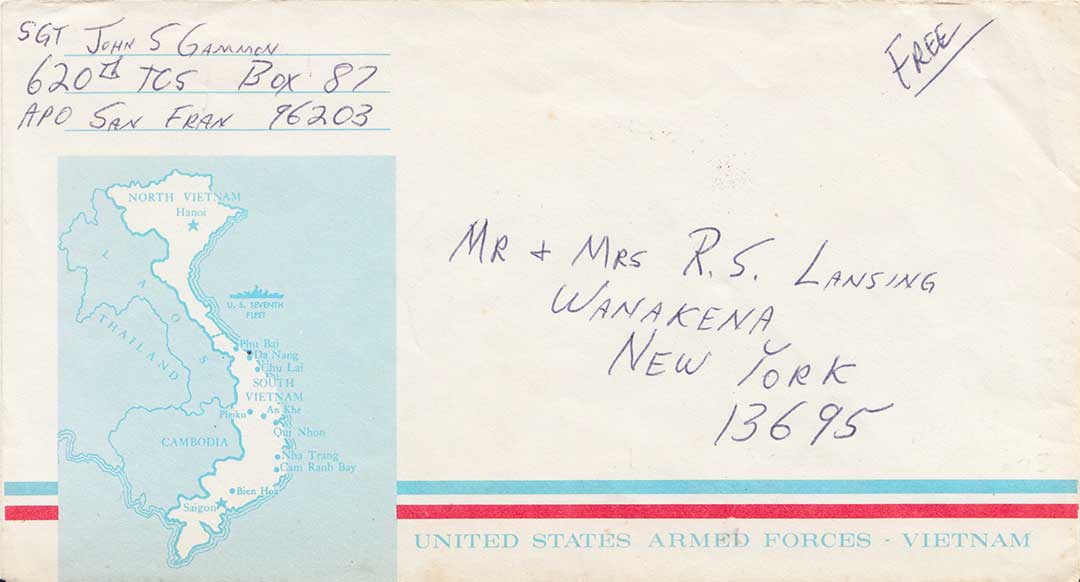 SGT John S Gammon
620th TCS Box 87
APO San Fran 96203
Free
Mr + Mrs R. S. Lansing
Wanakena
New York
13695
NORTH VIETNAM
Hanoi
LAOS
U. S. SEVENTH
FLEET
THAILAND
Phu Bai
Da Nang
Chu Lai
SOUTH
VIETNAM
Pleiku
An Khe
Qui Nhon
CAMBODIA
Nha Trang
Cam Ranh Bay
Bien Hoa
Saigon
UNITED STATES ARMED FORCES - VIETNAM